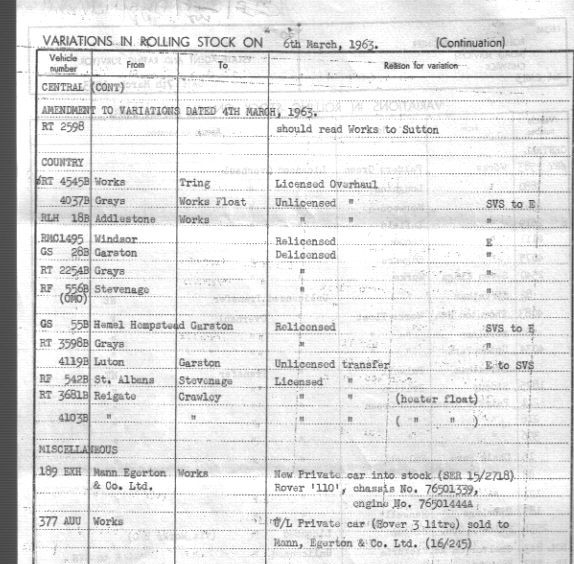 VARIATIONS IN ROLLING STOCK ON 6th March, 1963. (Continuation)
Vehicle number From To Reason for variation
CENTRAL (CONT)
AMENDMENT TO VARIATIONS DATED 4TH MARCH, 1963.
RT 2598 should read Works to Sutton
COUNTRY
RT 4545B Works Tring Licensed Overhaul
4037B Grays Works Float Unlicensed " SVS to E
RLH 18B Addlestone Works " " "
RMC1495 Windsor Relicensed E
GS 28B Garston Delicensed "
RT 2254B Grays " "
RF 556B Stevenage " "
(OMO)
GS 55B Hemel Hempstead Garston Relicensed SVS to E
RT 3598B Grays " "
4119B Luton Garston Unlicensed transfer E to SVS
RF 542B St. Albans Stevenage Licensed "
RT 3681B Reigate Crawley " " (heater float)
4103B " " " " ( " " )
MISCELLANEOUS
189 EXH Mann Egerton Works New Private car into stock (SER 15/2718)
& Co. Ltd. Rover '110', chassis No. 76501339,
engine No. 76501444A
377 AUU Works U/L Private car (Rover 3 litre) sold to
Mann, Egerton & Co. Ltd. (16/245)